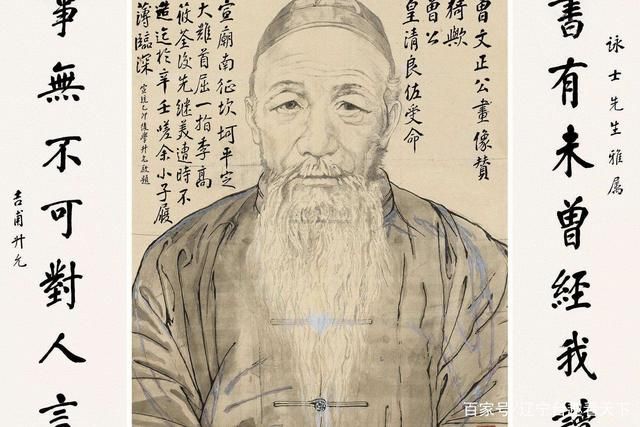 詠士先生雅属
書有未曾經我讀
曾文正公畫像贊
猗歟
曾公
皇清良佐受命
宣廟南征坎坷平定
大難首屈一指李高
筱荃後先繼美遭時不
造迄於辛壬嗟余小子履
薄臨深
宣統乙卯後學升允敬題
事無不可對人言
吉甫升允
百家号